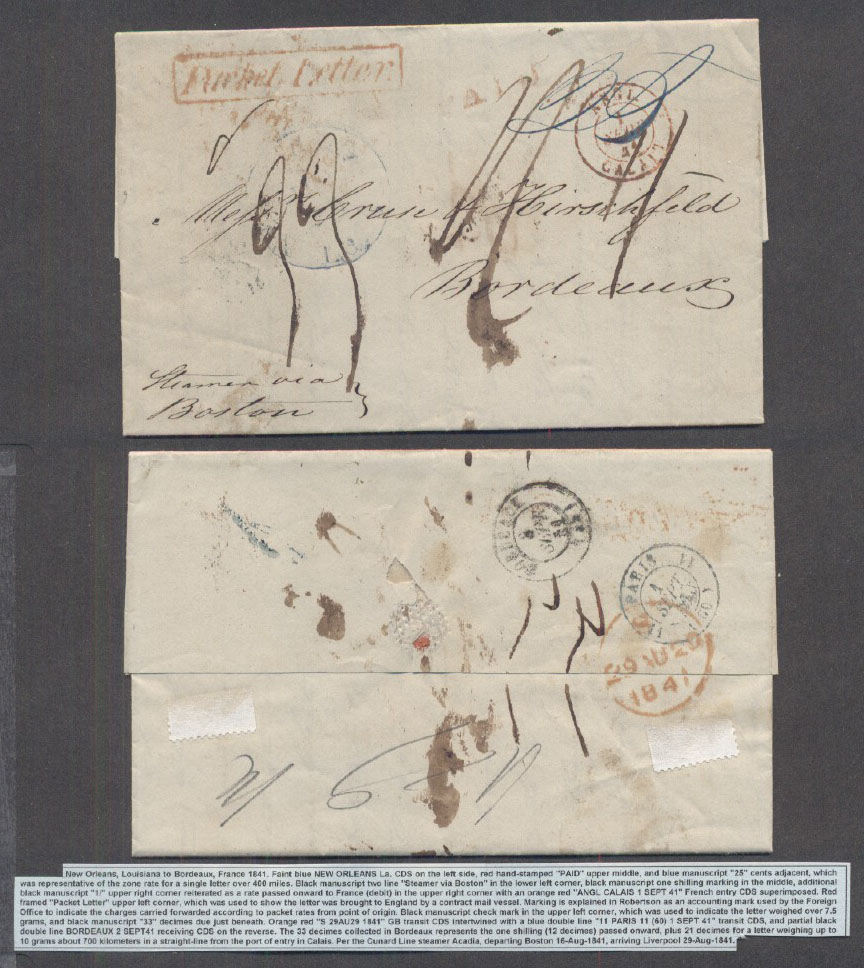 Packet Letter
PAID
25
ANGL.
1
SEPT
41
CALAIS
1/
1/
33
Messrs Cruse & Hirschfeld
LA.
Bordeaux
Steamer via
Boston
BORDEAUX
2
SEPT
41
PARIS
11
1
SEPT
41
(60)
29 AU 29
1841
New Orleans, Louisiana to Bordeaux, France 1841. Faint blue NEW ORLEANS La. CDS on the left side, red hand-stamped "PAID" upper middle, and blue manuscript "25" cents adjacent, which
was representative of the zone rate for a single letter over 400 miles. Black manuscript two line "Steamer via Boston" in the lower left corner, black manuscript one shilling marking in the middle, additional
black manuscript "1/" upper right corner reiterated as a rate passed onward to France (debit) in the upper right corner with an orange red "ANGL CALAIS 1 SEPT 41" French entry CDS superimposed. Red
framed "Packet Letter" upper left corner, which was used to show the letter was brought to England by a contract mail vessel. Marking is explained in Robertson as an accounting mark used by the Foreign
Office to indicate the charges carried forwarded according to packet rates from point of origin. Black manuscript check mark in the upper left corner, which was used to indicate the letter weighed over 7.5
grams, and black manuscript "33" decimes due just beneath. Orange red "S 29AU29 1841" GB transit CDS intertwined with a blue double line "11 PARIS 11 (60) 1 SEPT 41" transit CDS, and partial black
double line BORDEAUX 2 SEPT41 receiving CDS on the reverse. The 33 decimes collected in Bordeaux represents the one shilling (12 decimes) passed onward, plus 21 decimes for a letter weighing up to
10 grams about 700 kilometers in a straight-line from the port of entry in Calais. Per the Cunard Line steamer Acadia, departing Boston 16-Aug-1841, arriving Liverpool 29-Aug-1841.